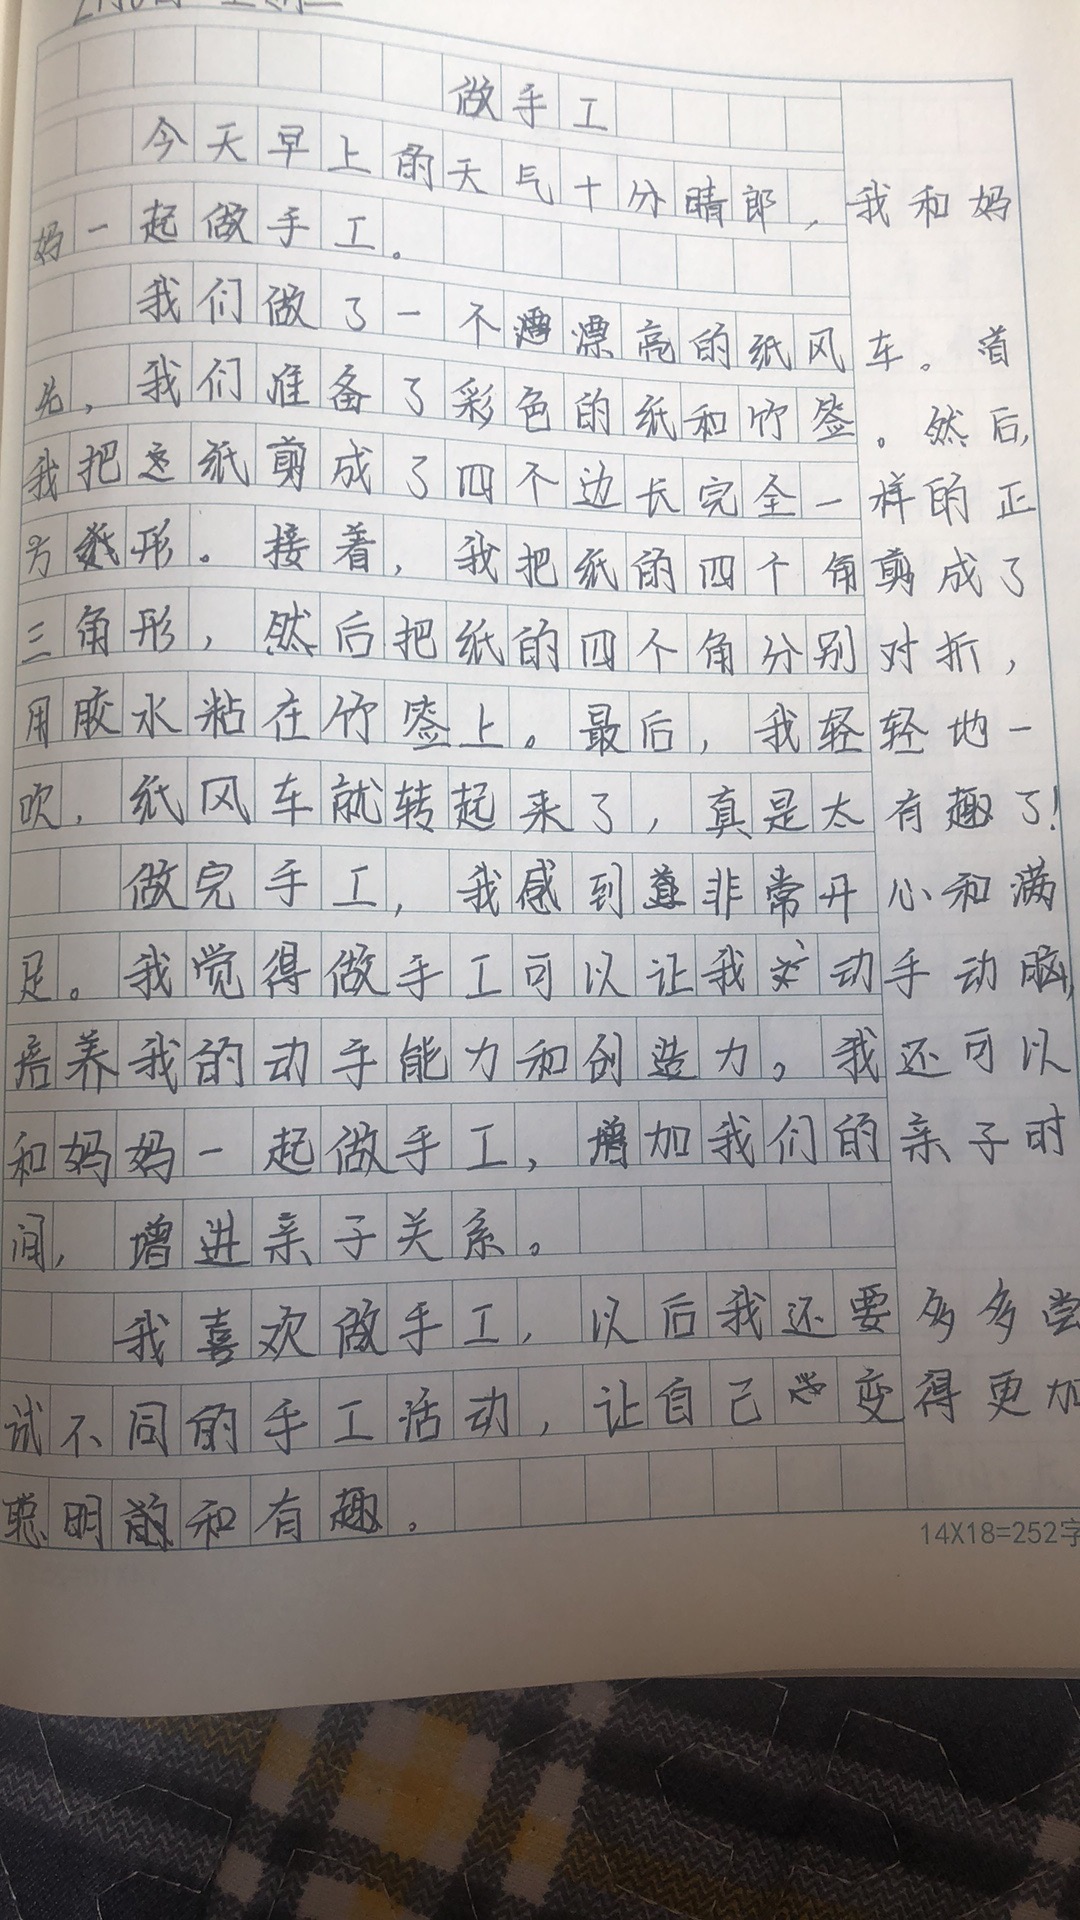 做手工
今天早上的天气十分晴郎，我和妈
妈一起做手工。
我们做了一个漂亮的纸风车。首
先，我们准备了彩色的纸和竹签。然后，
我把纸剪成了四个边长完全一样的正
方形。接着，我把纸的四个角剪成了
三角形，然后把纸的四个角分别对折，
用胶水粘在竹签上。最后，我轻轻地一
吹，纸风车就转起来了，真是太有趣了！
做完手工，我感到非常开心和满
足。我觉得做手工可以让我动手动脑，
培养我的动手能力和创造力。我还可以
和妈妈一起做手工，增加我们的亲子时
间，增进亲子关系。
我喜欢做手工，以后我还要多多尝
试不同的手工活动，让自己变得更加
聪明和有趣。
14X18=252字